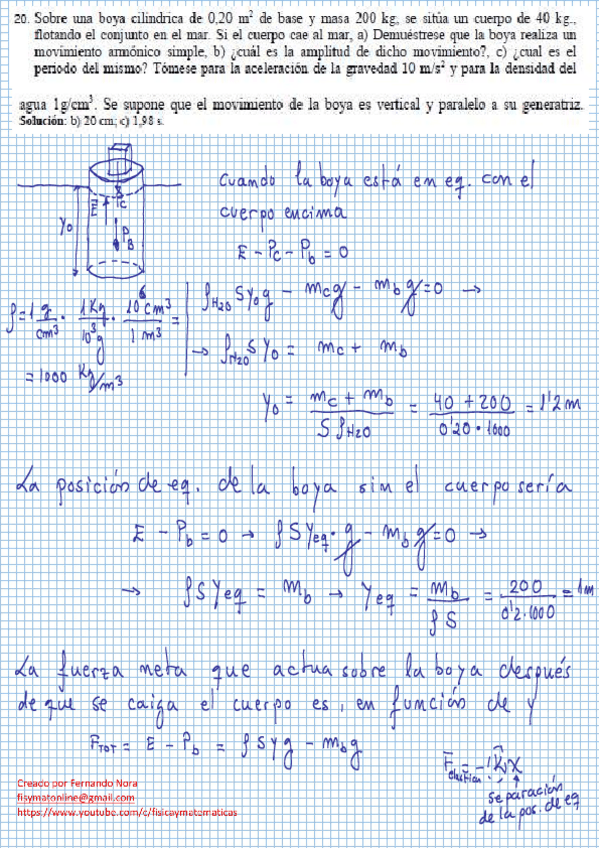 20. Sobre una boya cilindrica de 0,20 m² de base y masa 200 kg, se sitúa un cuerpo de 40 kg.,
flotando el conjunto en el mar. Si el cuerpo cae al mar, a) Demuéstrese que la boya realiza un
movimiento armónico simple, b) ¿cuál es la amplitud de dicho movimiento?, c) ¿cual es el
periodo del mismo? Tómese para la aceleración de la gravedad 10 m/s² y para la densidad del
agua 1g/cm³. Se supone que el movimiento de la boya es vertical y paralelo a su generatriz.
Solución: b) 20 cm; c) 1,98 s.
Cuando la boya está en eq. con el
cuerpo encima
E - Pc - Pb = 0
E Pc
y₀ PB
ρ = 1 g/cm³ · 1Kg/10³g · 10⁶cm³/1m³ =
= 1000 Kg/m³
ρH2O S y₀ g - mc g - mb g = 0 →
→ ρH2O S y₀ = mc + mb
y₀ = (mc + mb)/(S ρH2O) = (40 + 200)/(0'20 · 1000) = 1'2 m
La posición de eq. de la boya sin el cuerpo sería
E - Pb = 0 → ρ S yeq · g - mb g = 0 →
→ ρ S yeq = mb → yeq = mb/(ρ S) = 200/(0'2·1000) = 1m
La fuerza neta que actua sobre la boya después
de que se caiga el cuerpo es, en función de y
FTOT = E - Pb = ρ S y g - mb g
Felástica = -K x
separación
de la pos. de eq
Creado por Fernando Nora
fisymatonline@gmail.com
https://www.youtube.com/c/fisicaymatematicas